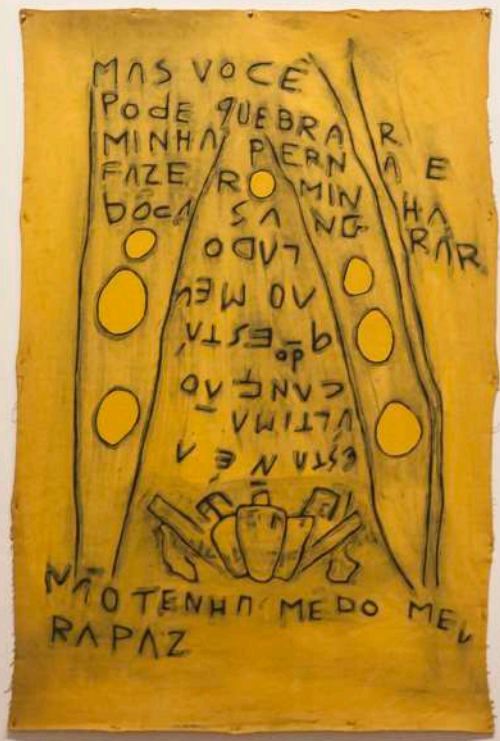 MAS VOCÊ
PodE QUEBRAR
MINHA PERNA E
FAZER MINHA
bocA SANGRAR
ESTA Ñ É A
ÚLTIMA
CANÇÃO
do
q ESTÁ
AO MEU
LADO
NÃO TENHA MEDO MEU
RAPAZ